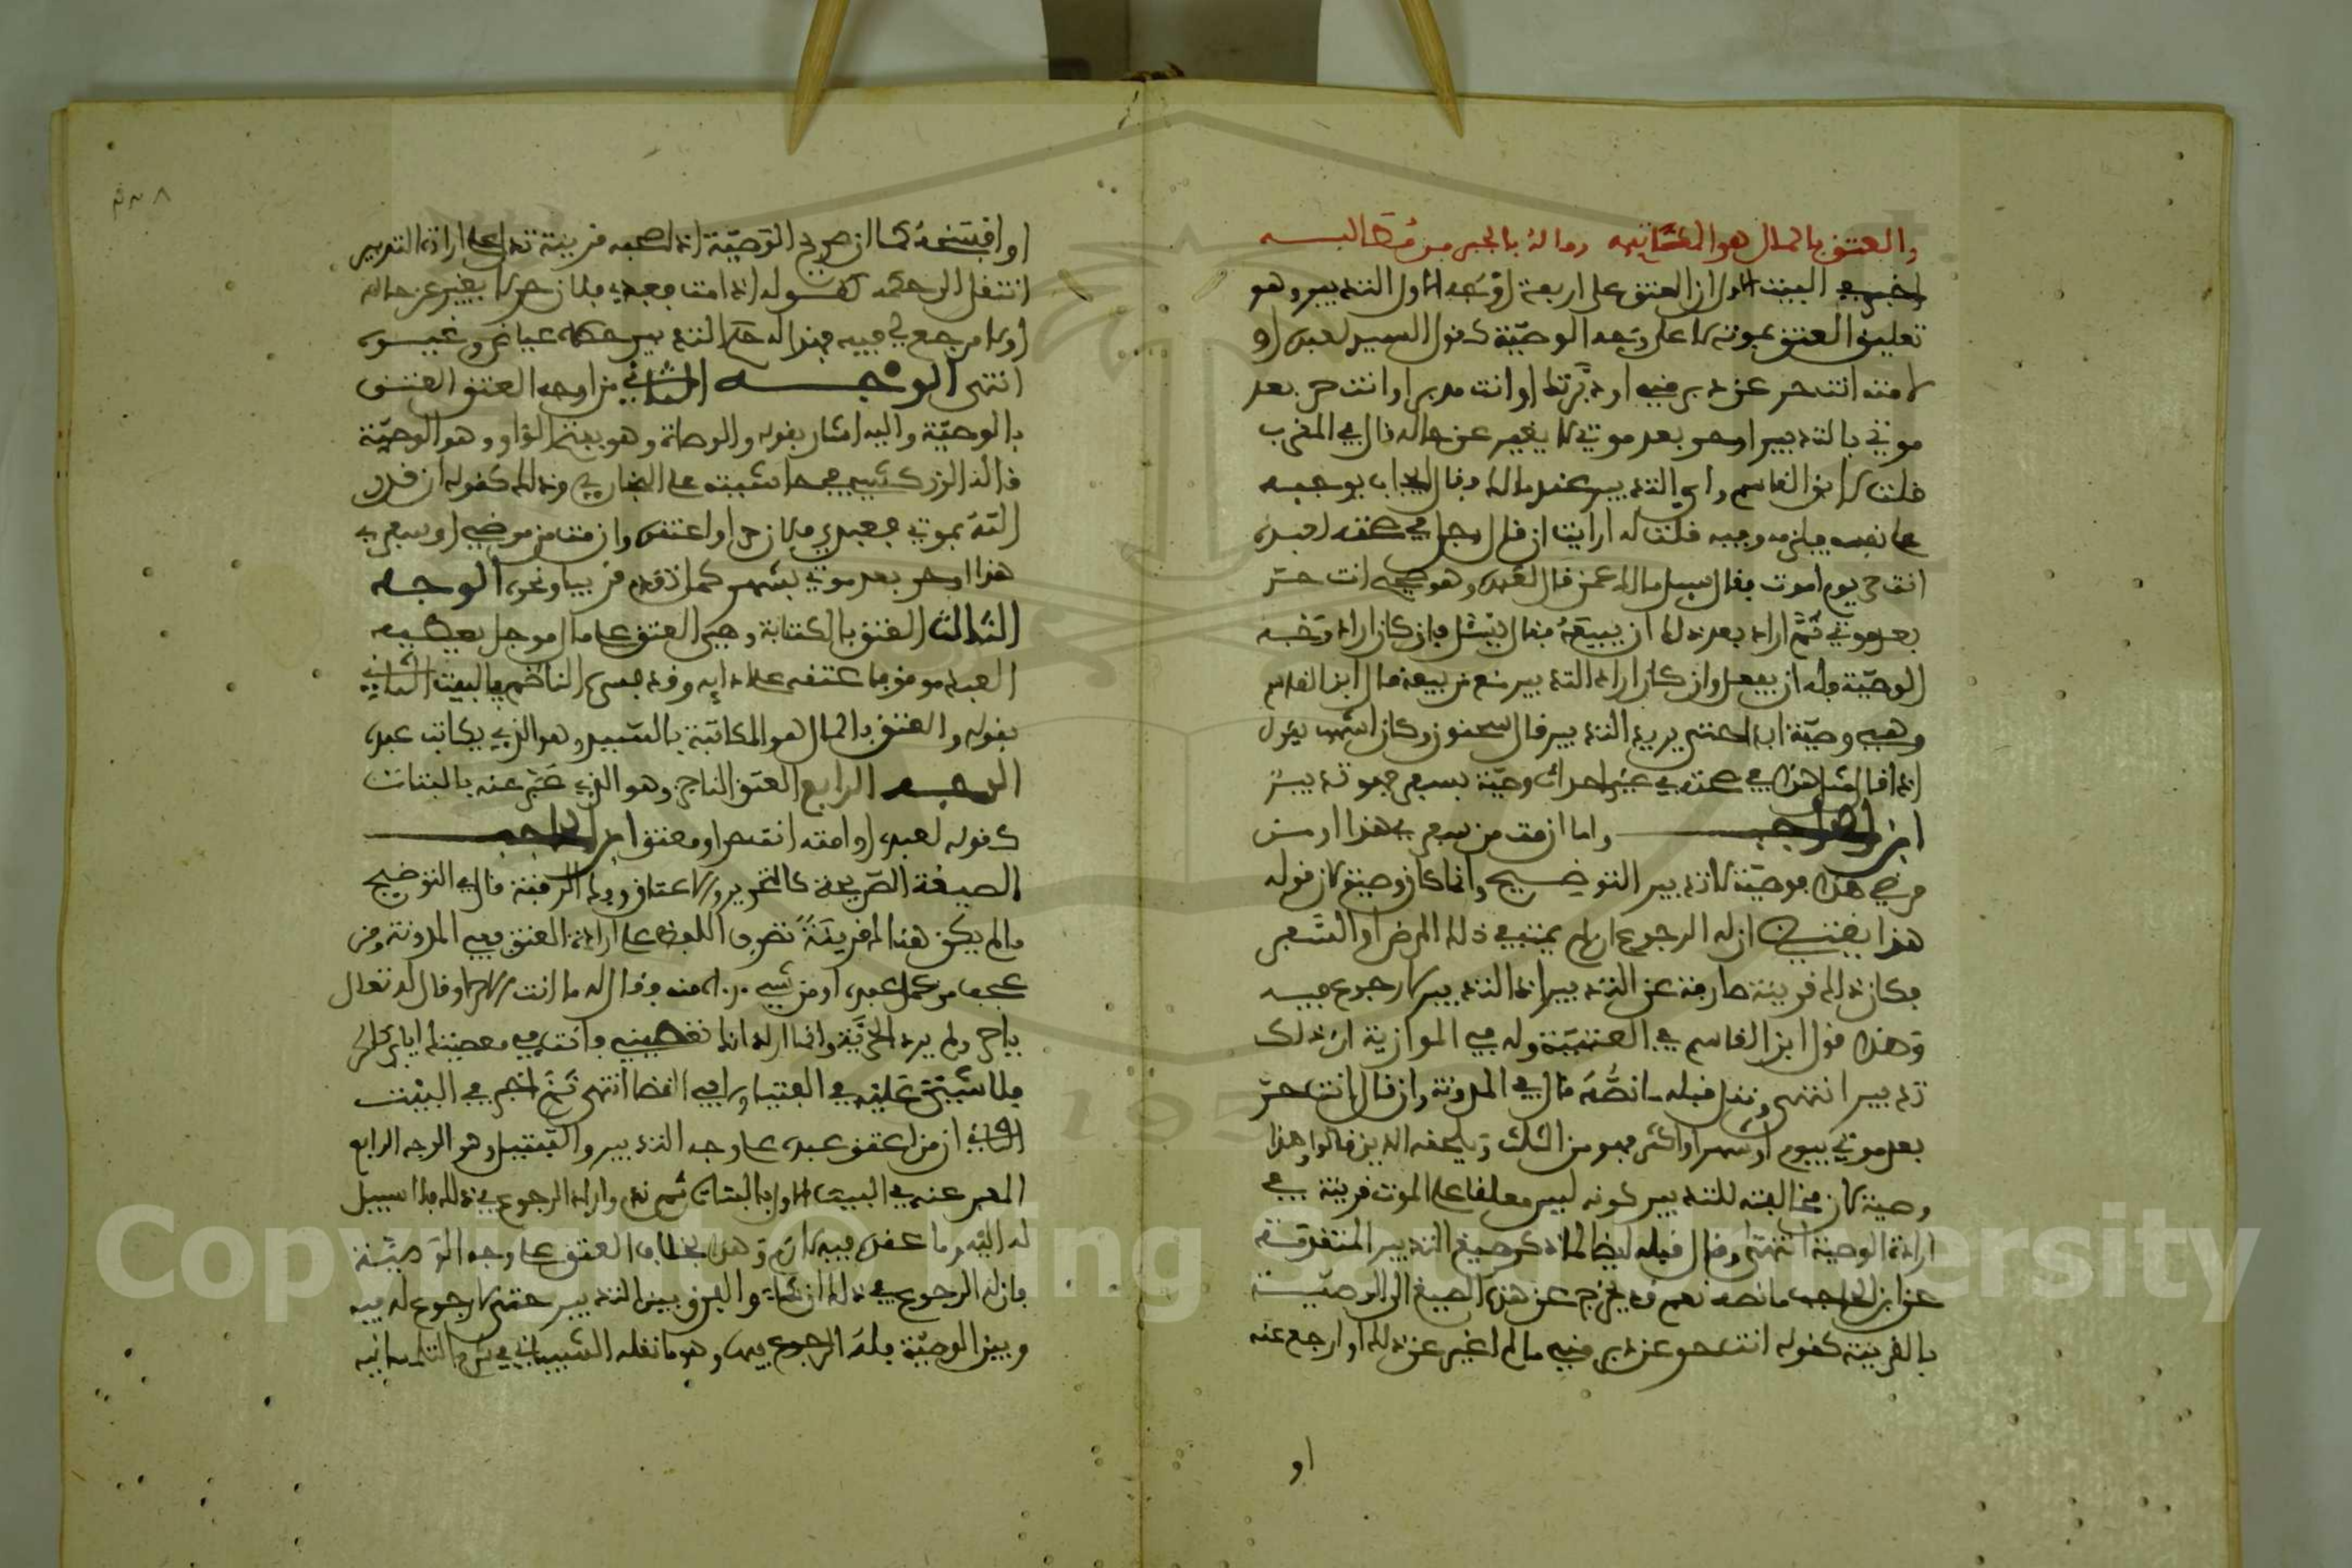 والعتق بالمال هو المكاتبه وماله بالجبر من مطالبه
اخبر في البيت الاول ان العتق على اربعة اوجه الاول التدبير وهو
تعليق العتق بموته لا على وجه الوصيّة كقول السيد لعبده او
لامته انت حر عن دبر مني او دبّرتك او انت مدبر او انت حر بعد
موتي بالتدبير او حر بعد موتي لا يغير عن حاله قال في المغرب
قلت لابن القاسم واي التدبير عند مالك وقال ايجاب يوجبه
على نفسه يلزمه وجبه قلت له ارايت ان قال رجل في صحته لعبده
انت حر يوم اموت فقال سيل مالك عمن قال لعبده وهو صحيح انت حر
بعد موتي ثُمَّ اراد بعد ذلك ان يبيعهُ فقال يسئل فان كان اراد وجه
الوصيّة فله ان يفعل وان كان اراد التدبير منع من بيعه قال ابن القاسم
وهي وصيّة ابدا حتى يريد التدبير قال سحنون وكان اشهب يقول
اذا قال مثل هذا في صحته في غير احداث وصيّة بسفر فهو تدبير
ابن الحاجب واما ان مت من سفري هذا او من
مرضي هذا فوصيّة لا تدبير التوضيح وانما كان وصيّة لان قوله
هذا يقتضي ان له الرجوع ان لم يمت في ذلك المرض او السّفر
فكان ذلك قرينة صارفة عن التدبير اذ التدبير لا رجوع فيه
وهذا قول ابن القاسم في العتبيّة وله في الموازية ان ذلك
تدبير انتهى ونقل قبله ما نصُّهُ قال في المدونة وان قال انت حر
بعد موتي بيوم او شهر او اكثر فهو من الثلث ويلحقه الدين قالوا وهذا
وصية لان مخالفته للتدبير كونه ليس معلقا على الموت قرينة في
ارادة الوصية انتهى وقال قبله ايضا لما ذكر صيغ التدبير المتقدّمة
عن ابن الحاجب ما نصه نعم قد يخرج عن هذه الصيغ الى الوصيّة
بالقرينة كقوله انت حر عن دبر مني ما لم اغير عن ذلك او ارجع عنه
او
او افسخهُ كما ان صريح الوصيّة اذا صحبه قرينة تدل على ارادة التدبير
انتقل الى حكمه كقوله اذا مت فعبدي فلان حر لا يغير عن حاله
او لا مرجع لي فيه فهذا له حكم التدبير حكاه عياض وغيره
انتهى الوجه الثاني من اوجه العتق العتق
بالوصيّة واليه اشار بقوله والوصاة وهو بفتح الواو وهو الوصيّة
قاله الزركشي في حاشيته على البخاري وذلك كقوله ان قدر
اللهُ بموتي فعبدي فلان حر او اعتقوه وان مت من مرضي او سفري
هذا او حر بعد موتي بشهر كما تقدم قريبا ونحوه الوجه
الثالث العتق بالكتابة وهي العتق على مال موجل يعطيه
العبد موقوفا عتقه على ادايه وقد فسره الناظم في البيت الثاني
بقوله والعتق بالمال هو المكاتبة بالسيد وهو الذي يكاتب عبده
الوجه الرابع العتق الناجز وهو الذي عبّر عنه بالبتات
كقوله لعبده او امته انت حر او معتق ابن الحاجب
الصيغة الصّريحة كالتحرير والاعتاق وفك الرقبة قال في التوضيح
ما لم يكن هناك قرينةٌ تصرف اللفظ عن ارادة العتق ففي المدونة ومن
عجب من عمل عبده او من شيء راه منه فقال له ما انت الا حر او قال له تعال
يا حر ولم يرد الحرّيّة وانما اراد انك تعصيني فانت في معصيتك اياي كالحر
فلا شيء عليه في الفتيا ولا في القضا انتهى ثمَّ اخبر في البيت
الثاني ان من اعتق عبده على وجه التدبير والتبتيل وهو الوجه الرابع
المعبر عنه في البيت الاول بالبتات ثم ندم واراد الرجوع في ذلك فلا سبيل
له اليه وما عقده فيه لازم وهذا بخلاف العتق على وجه الوصيّة
فان له الرجوع في ذلك ان شاء والفرق بين التدبير حتى لا رجوع له فيه
وبين الوصيّة فله الرجوع فيها وهو ما نقله الشبيباني في شرح التلمسانيه